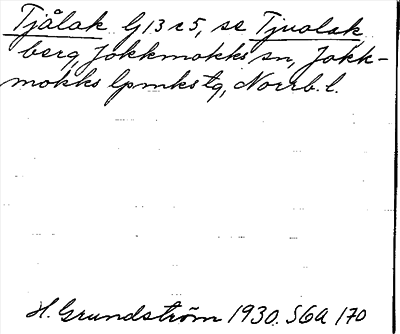 Tjålak G 13 r 5, se Tjuolak
berg, Jokkmokks sn, Jokk-
mokks lpmkstg, Norrb. l.
H. Grundström 1930. S6A 170